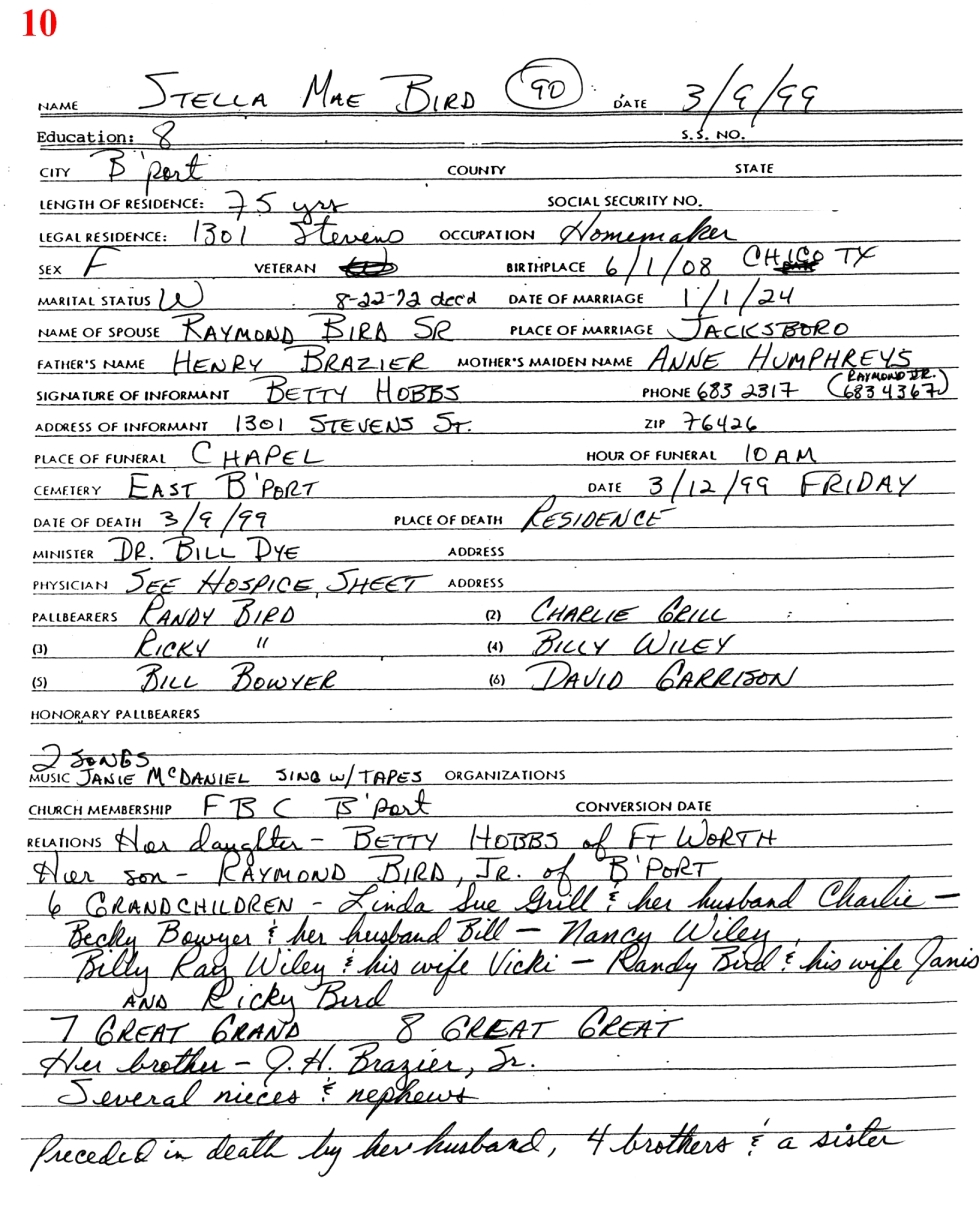 10
NAME STELLA MAE BIRD 90 DATE 3/9/99
Education: 8 S.S. NO.
CITY B'port COUNTY STATE
LENGTH OF RESIDENCE: 75 yrs SOCIAL SECURITY NO.
LEGAL RESIDENCE: 1301 Stevens OCCUPATION Homemaker
SEX F VETERAN BIRTHPLACE 6/1/08 CHICO TX
MARITAL STATUS W 8-22-72 decd DATE OF MARRIAGE 1/1/24
NAME OF SPOUSE RAYMOND BIRD SR PLACE OF MARRIAGE JACKSBORO
FATHER'S NAME HENRY BRAZIER MOTHER'S MAIDEN NAME ANNE HUMPHREYS
SIGNATURE OF INFORMANT BETTY HOBBS PHONE 683 2317 (RAYMOND JR. 683 4367)
ADDRESS OF INFORMANT 1301 STEVENS ST. ZIP 76426
PLACE OF FUNERAL CHAPEL HOUR OF FUNERAL 10 AM
CEMETERY EAST B'PORT DATE 3/12/99 FRIDAY
DATE OF DEATH 3/9/99 PLACE OF DEATH RESIDENCE
MINISTER DR. BILL DYE ADDRESS
PHYSICIAN SEE HOSPICE SHEET ADDRESS
PALLBEARERS RANDY BIRD (2) CHARLIE GRILL
(3) RICKY " (4) BILLY WILEY
(5) BILL BOWYER (6) DAVID GARRISON
HONORARY PALLBEARERS
2 SONGS
MUSIC JANIE McDANIEL SING W/TAPES ORGANIZATIONS
CHURCH MEMBERSHIP FBC B'port CONVERSION DATE
RELATIONS Her daughter - BETTY HOBBS of FT WORTH
Her son - RAYMOND BIRD, JR. of B'PORT
6 GRANDCHILDREN - Linda Sue Grill & her husband Charlie -
Becky Bowyer & her husband Bill - Nancy Wiley,
Billy Ray Wiley & his wife Vicki - Randy Bird & his wife Janis
AND Ricky Bird
7 GREAT GRAND 8 GREAT GREAT
Her brother - J. H. Brazier, Sr.
Several nieces & nephews
Preceded in death by her husband, 4 brothers & a sister